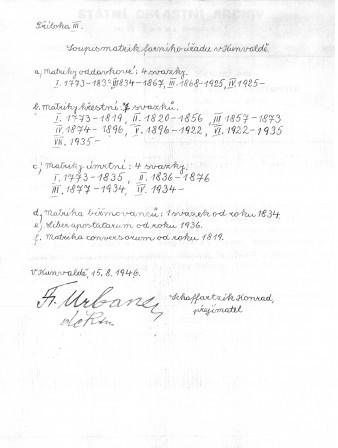 Příloha III.
Soupis matrik farního úřadu v Kunvaldě.
a, Matriky oddavkové: 4 svazky.
I. 1773-183 II 1834-1867, III. 1868-1925, IV. 1925-
b. Matriky křestní: 7 svazků.
I. 1773-1819, II. 1820-1856, III 1857-1873
IV. 1874-1896, V. 1896-1922, VI. 1922-1935
VII. 1935-
c, Matriky úmrtní: 4 svazky.
I. 1773-1835, II. 1836-1876
III. 1877-1934, IV. 1934-
d, Matrika biřmovanců: 1 svazek od roku 1834.
e, Liber apostatarum od roku 1936.
f. Matrika conversorum od roku 1819.
V Kunvaldě, 15. 8. 1946.
Fr. Urbanec
děkan
Schaffartzik Konrad,
přejímatel